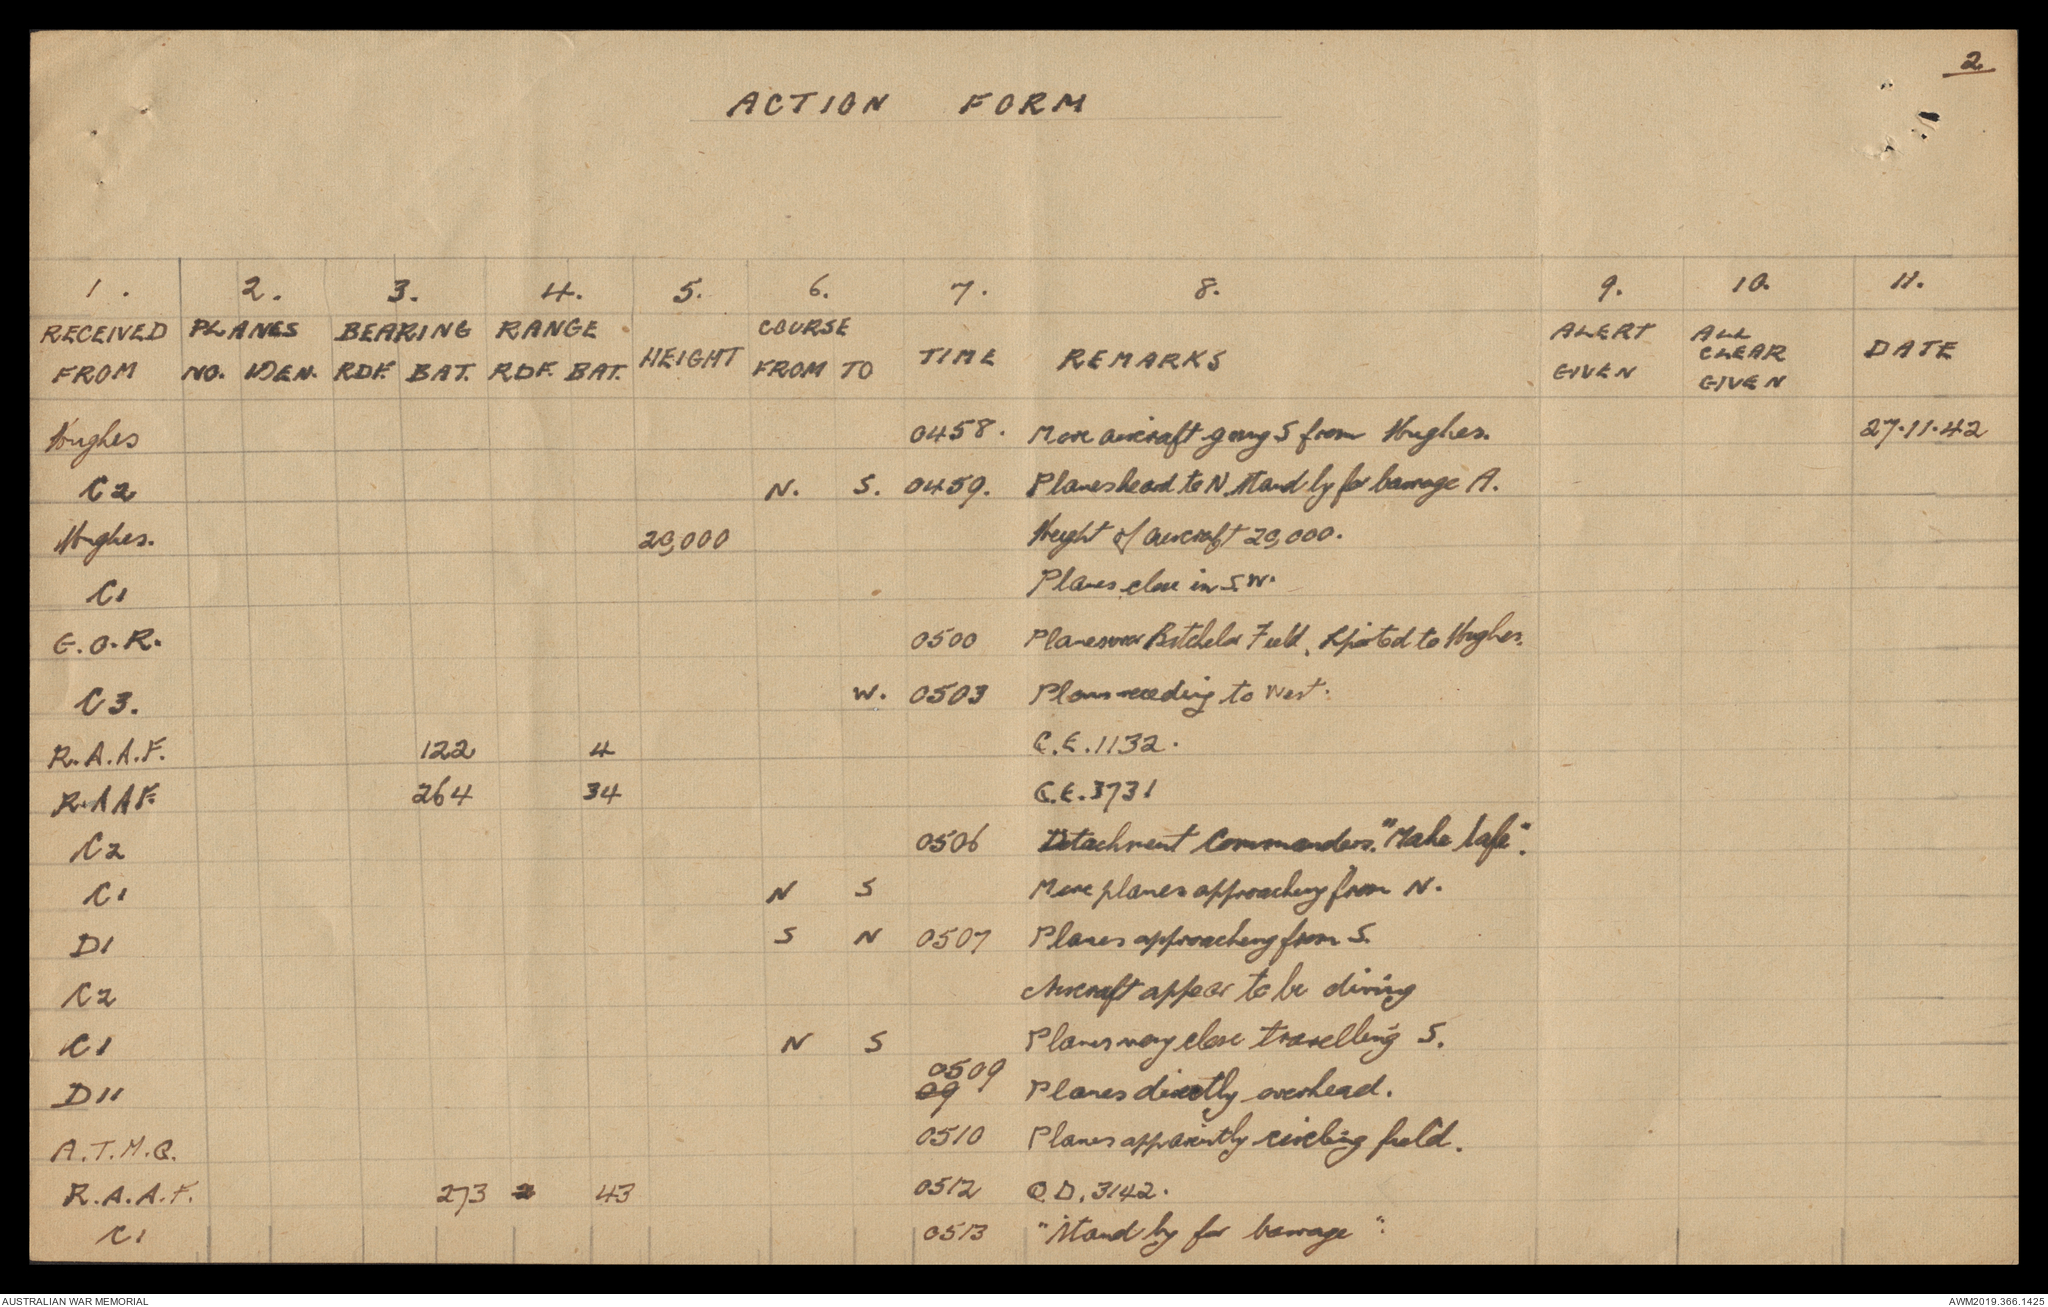 2
ACTION FORM
1. 2. 3. 4. 5. 6. 7. 8. 9. 10. 11.
RECEIVED FROM PLANES NO. IDEN. BEARING RDF. BAT. RANGE RDF. BAT. HEIGHT COURSE FROM TO TIME REMARKS ALERT GIVEN ALL CLEAR GIVEN DATE
Hughes 0458. More aircraft going S from Hughes. 27.11.42
C2 N. S. 0459. Planes heard to N. Stand by for barrage A.
Hughes. 20,000 Height of aircraft 20,000.
C1 Planes close in S.W.
G.O.R. 0500 Planes over Batchelor Field, reported to Hughes.
C3. W. 0503 Planes receding to West.
R.A.A.F. 122 4 Q.E. 1132.
R.A.A.F. 264 34 Q.E. 3731
C2 0506 Detachment Commanders. "Make Safe".
C1 N S More planes approaching from N.
D1 S N 0507 Planes approaching from S.
C2 Aircraft appear to be diving
C1 N S Planes very close travelling S.
D11 0509 09 Planes directly overhead.
A.T.M.Q. 0510 Planes apparently circling field.
R.A.A.F. 273 2 43 0512 Q.D. 3142.
C1 0513 "Stand by for barrage".
AUSTRALIAN WAR MEMORIAL AWM2019.366.1425